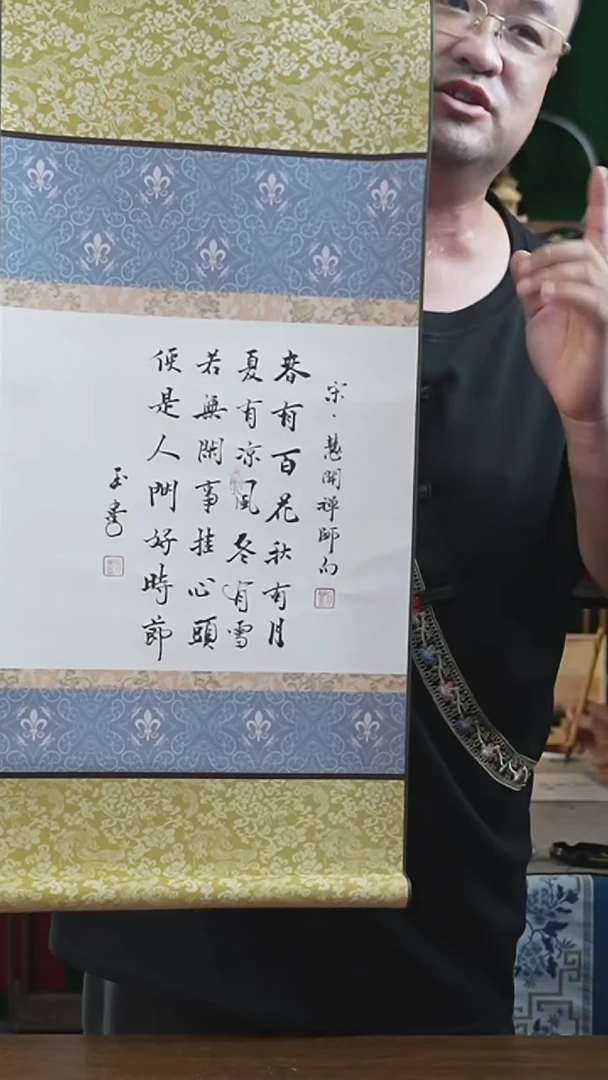 宋·慧開禅師句
春有百花秋有月
夏有凉風冬有雪
若無閑事挂心頭
便是人間好時節